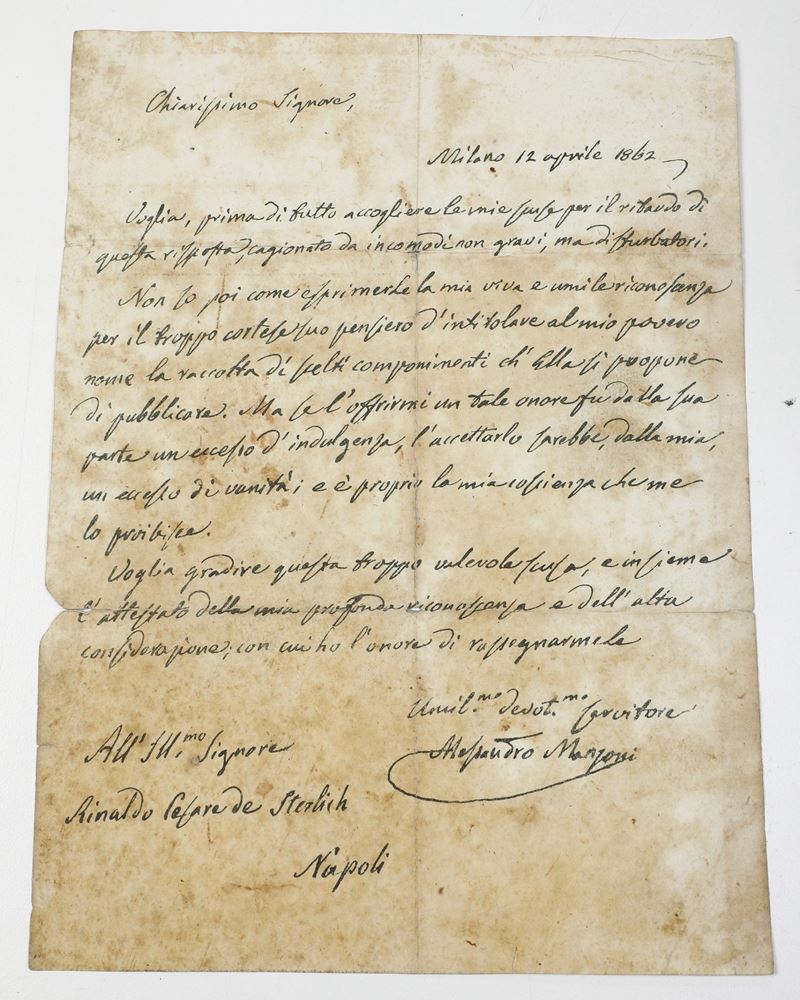 Chiarissimo Signore,
Milano 12 aprile 1862
Voglia, prima di tutto accogliere le mie scuse per il ritardo di
questa risposta, cagionato da incomodi non gravi, ma disturbatori.
Non so poi come esprimerle la mia viva e umile riconoscenza
per il troppo cortese suo pensiero d'intitolare al mio povero
nome la raccolta di scelti componimenti ch'Ella si propone
di pubblicare. Ma se l'offrirmi un tale onore fu dalla sua
parte un eccesso d'indulgenza, l'accettarlo sarebbe, dalla mia,
un eccesso di vanità; e è proprio la mia coscienza che me
lo proibisce.
Voglia gradire questa troppo valevole scusa, e insieme
l'attestato della mia profonda riconoscenza e dell'alta
considerazione, con cui ho l'onore di rassegnarmele
Umil.mo devot.mo servitore
Alessandro Manzoni
All'Ill.mo Signore
Rinaldo Cesare de Sterlich
Napoli